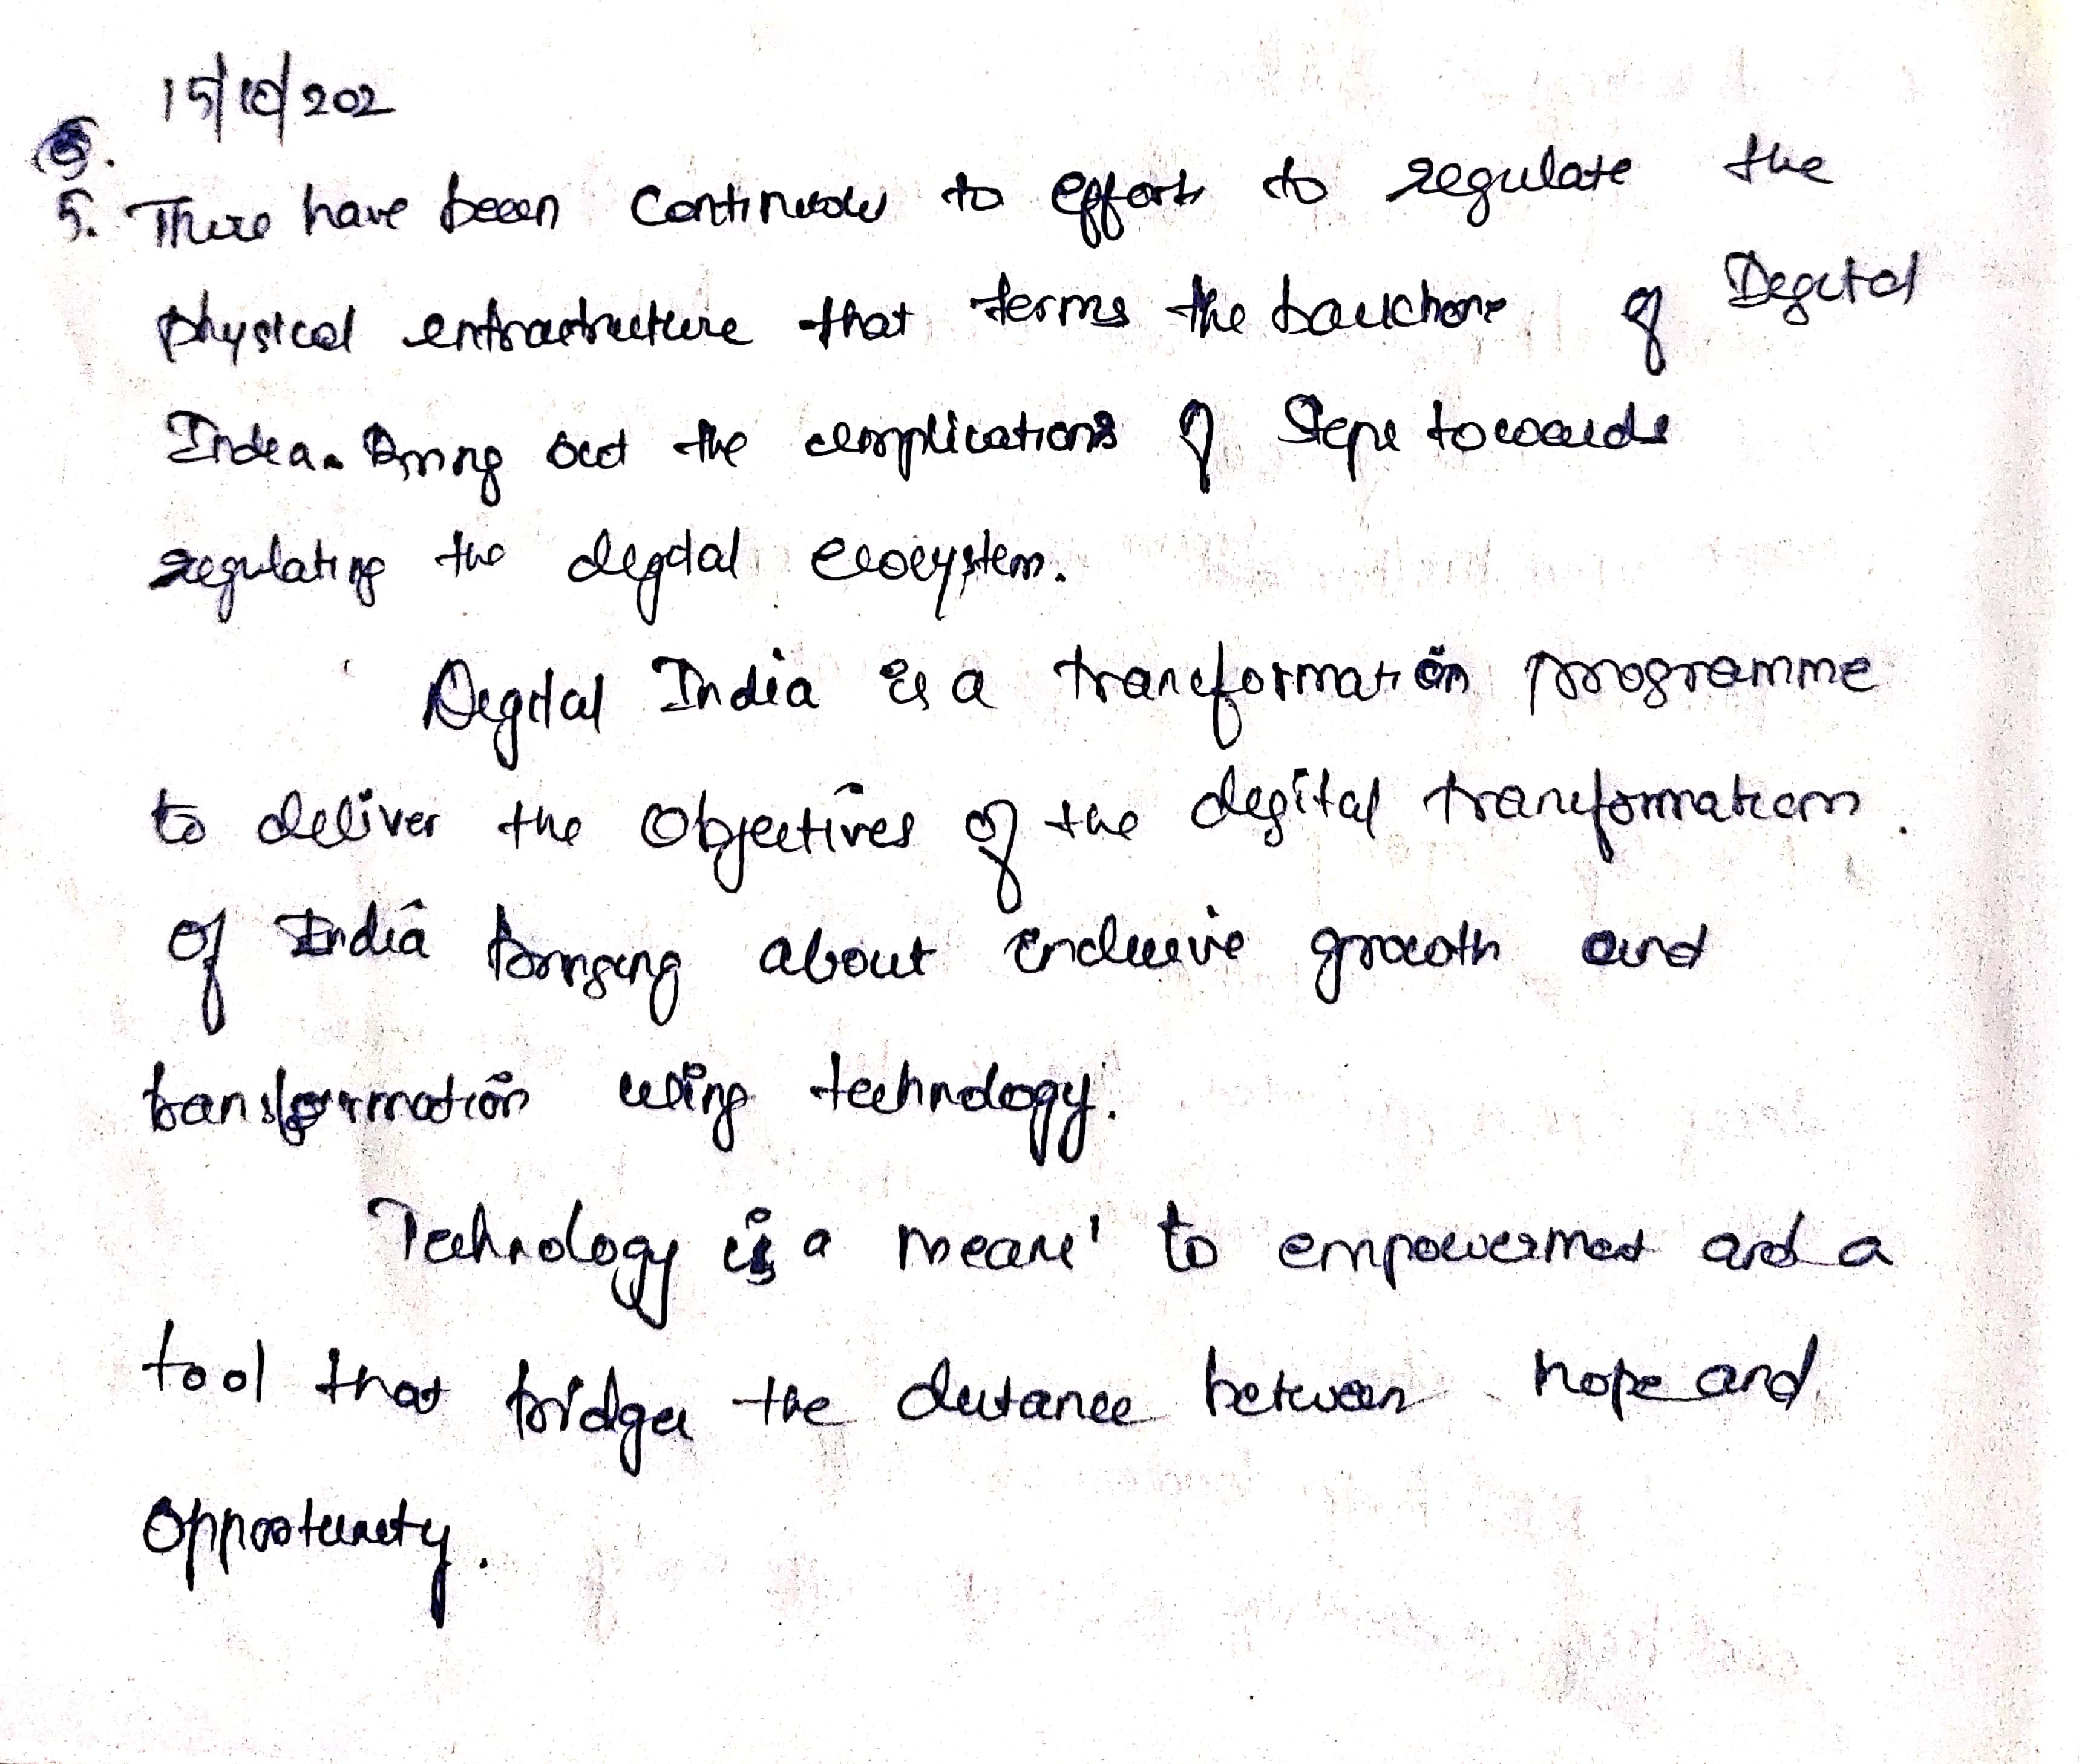 15/10/202
5. There have been continuous to efforts to regulate the
physical infrastructure that terms the backbone of Digital
India. Bring out the implications of Steps towards
regulating the digital ecosystem.
Digital India is a transformation programme
to deliver the Objectives of the digital transformation.
of India bringing about inclusive growth and
transformation using technology.
Technology is a means' to empowerment and a
tool that bridges the distance between hope and
Opportunity.